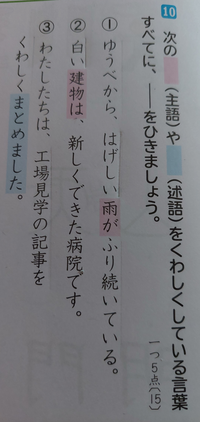 10 次の (主語)や (述語)をくわしくしている言葉
すべてに、──をひきましょう。
一つ5点(15)
① ゆうべから、はげしい雨がふり続いている。
② 白い建物は、新しくできた病院です。
③ わたしたちは、工場見学の記事を
くわしくまとめました。